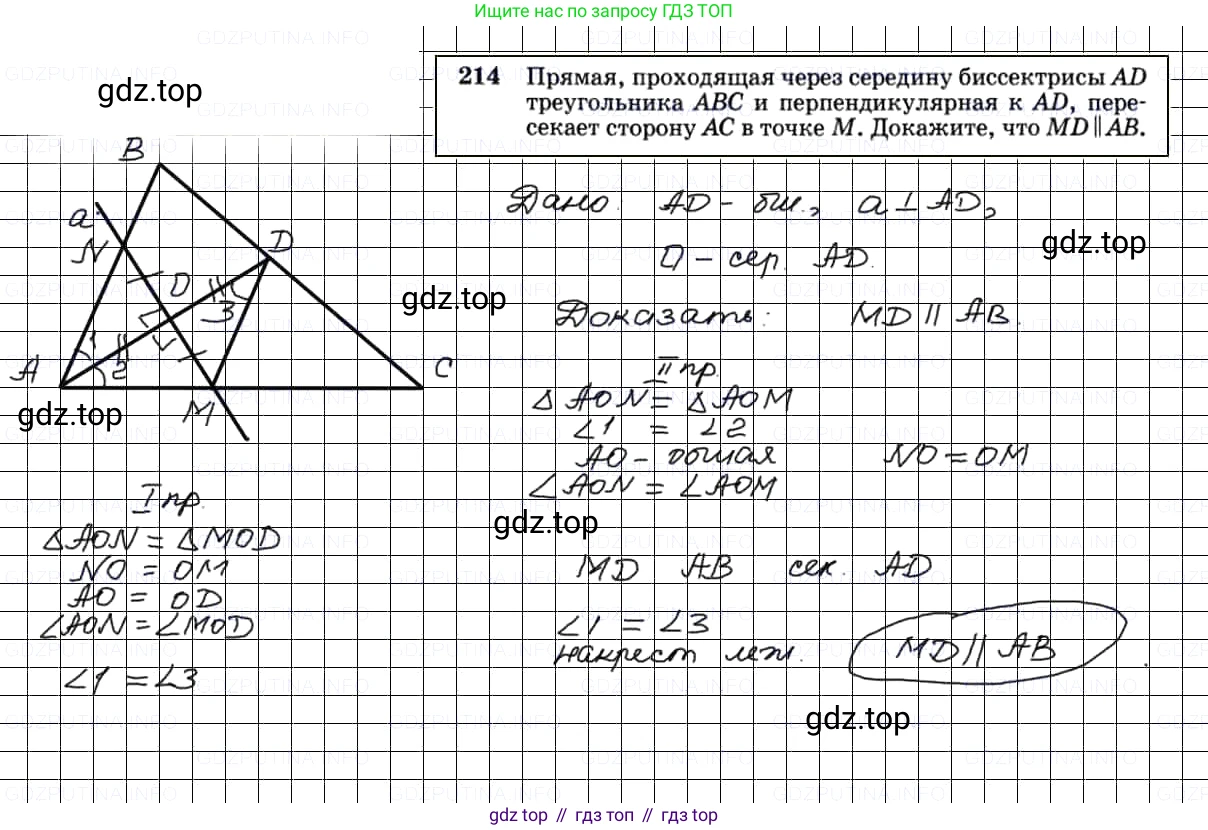 Ищите нас по запросу ГДЗ ТОП
214 Прямая, проходящая через середину биссектрисы AD
треугольника ABC и перпендикулярная к AD, пере-
секает сторону AC в точке M. Докажите, что MD ∥ AB.
gdz.top
B
a
N
D
O
3
1
2
A
M
C
Дано: AD - бис., a ⊥ AD,
O - сер. AD.
gdz.top
gdz.top
Доказать: MD ∥ AB.
gdz.top
II пр.
△ AON = △ AOM
∠1 = ∠2
AO - общая NO = OM
∠AON = ∠AOM
gdz.top
I пр.
△AON = △MOD
NO = OM
AO = OD
∠AON = ∠MOD
∠1 = ∠3
MD AB сек. AD
∠1 = ∠3
накрест леж. MD ∥ AB.
gdz.top
GDZPUTINA.INFO
gdz top // гдз топ // gdz top